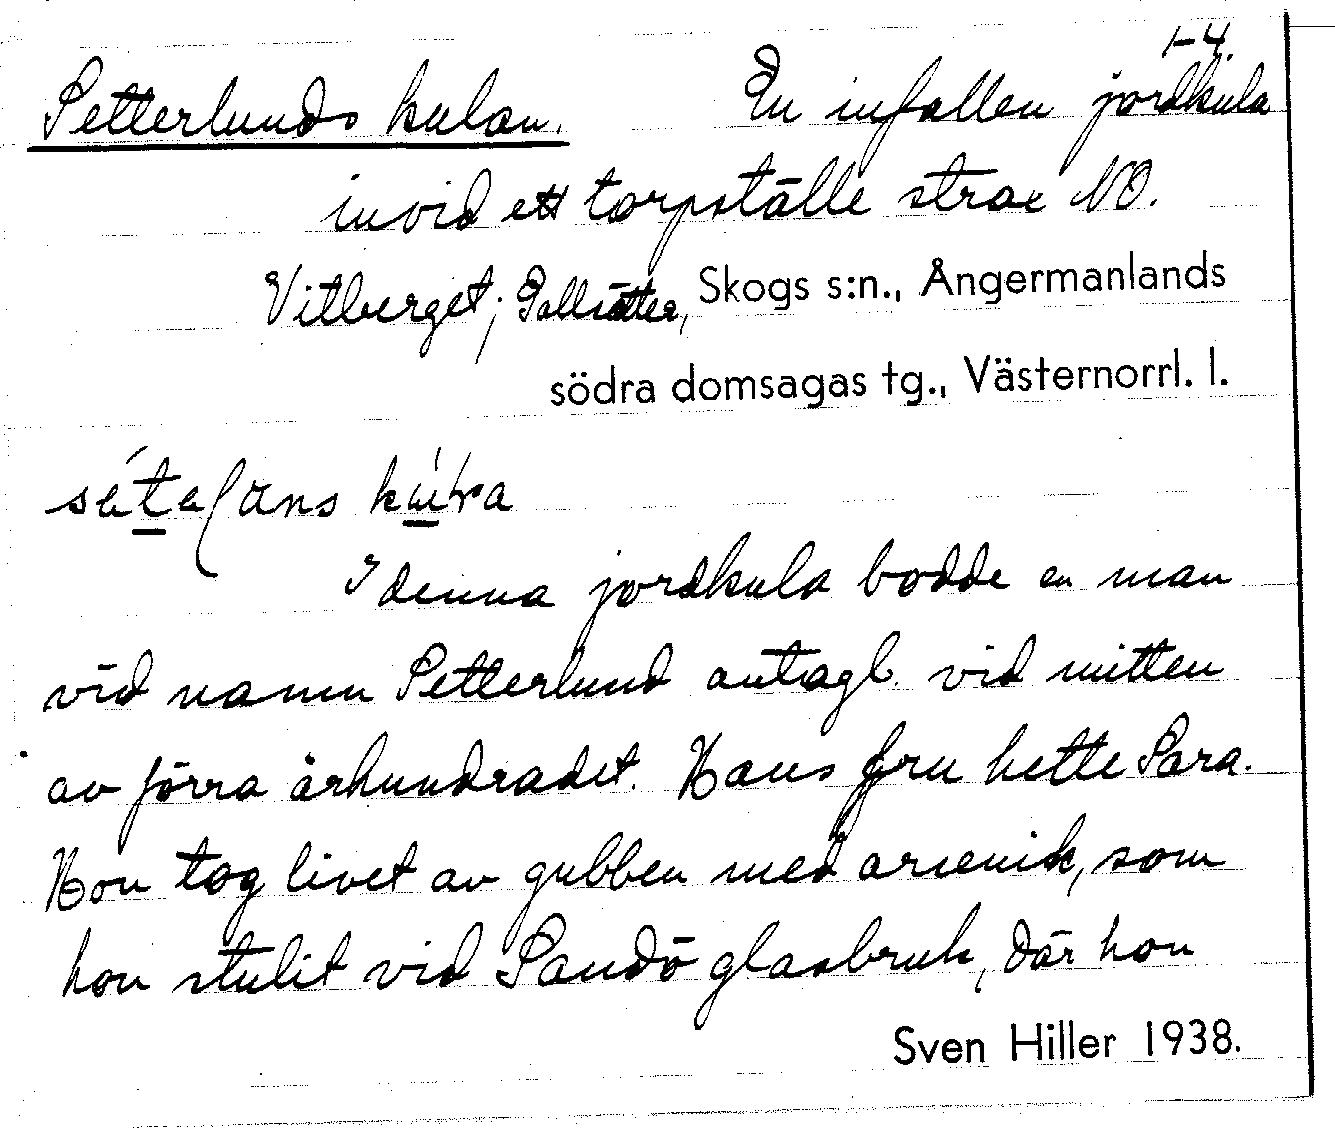 1-4.
Petterlunds kulan. En infallen jordkula
invid ett torpställe strax NO.
Vitberget; Pallsätter, Skogs s:n., Ångermanlands
södra domsagas tg., Västernorrl. l.
I denna jordkula bodde en man
vid namn Petterlund antagl. vid mitten
av förra århundradet. Hans fru hette Sara.
Hon tog livet av gubben med arsenik, som
hon stulit vid Sandö glasbruk, där hon
Sven Hiller 1938.